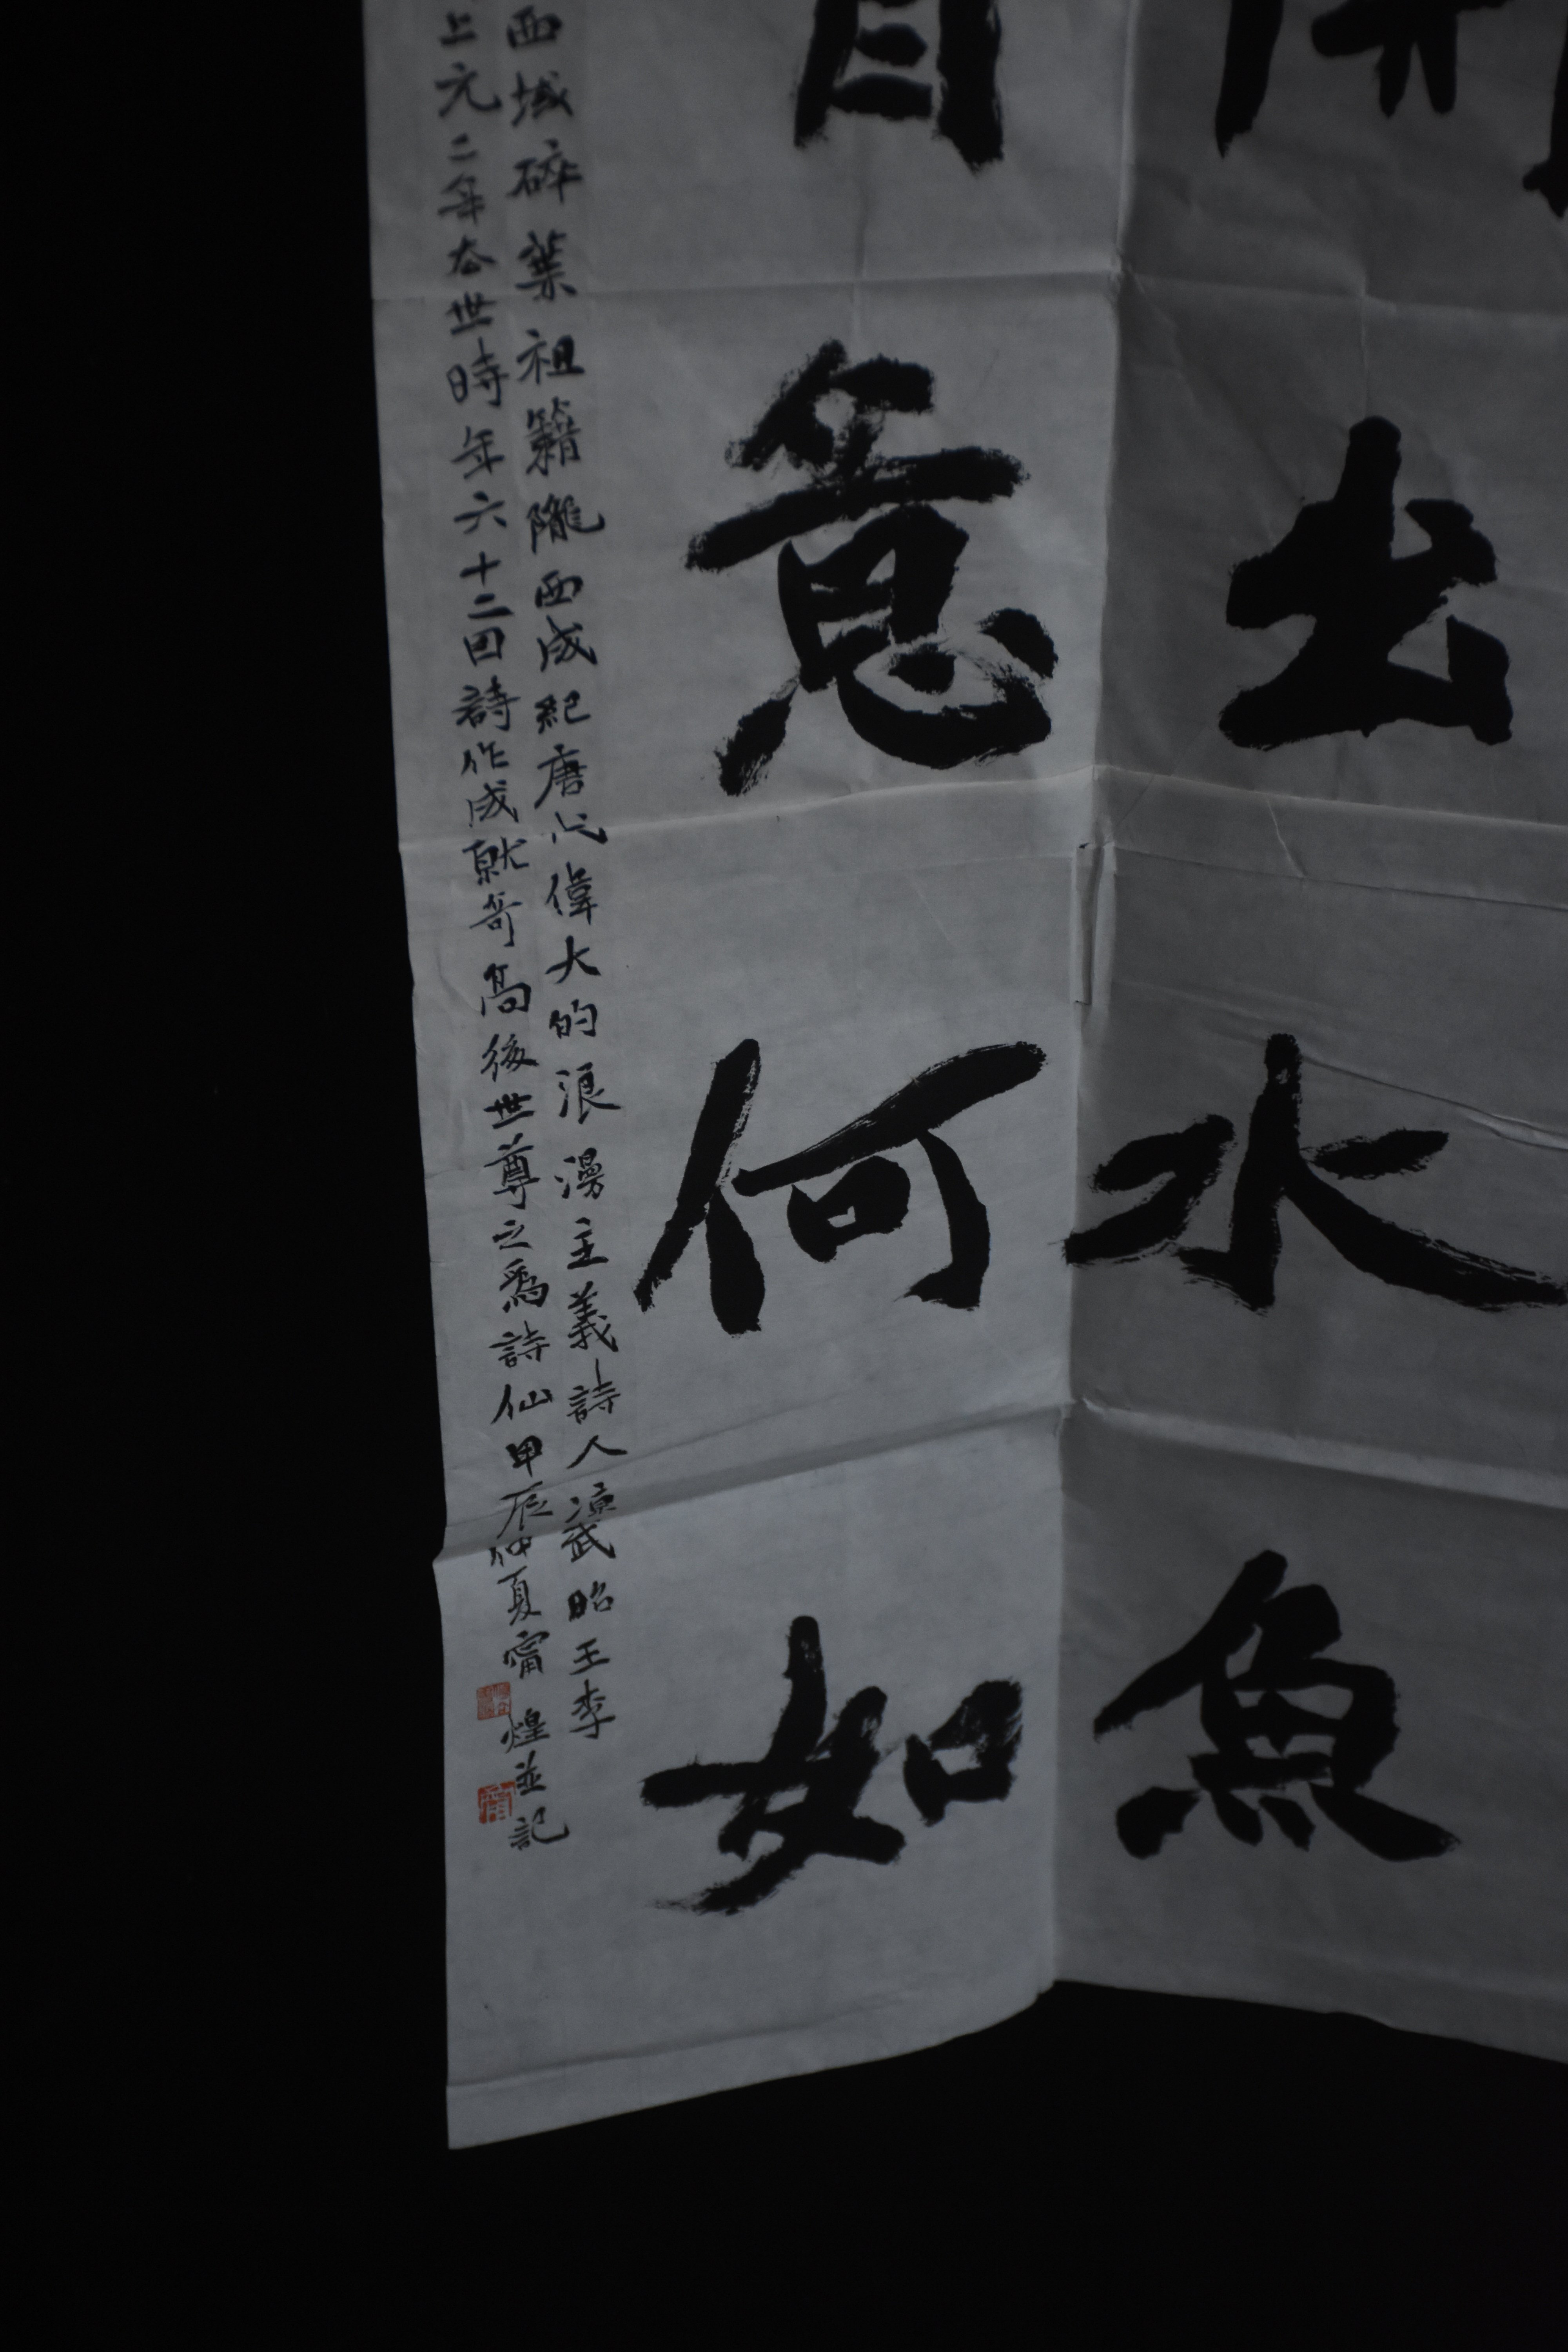 出水魚
意何如
西域碎葉祖籍隴西成紀唐代偉大的浪漫主義詩人涼武昭王李
上元二年去世時年六十二因詩作成就奇高後世尊之為詩仙甲辰仲夏甯煌並記